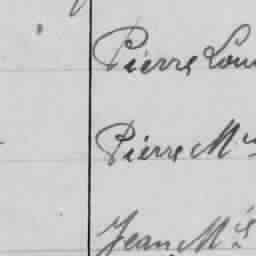 Pierre Lou
Pierre M
Jean M